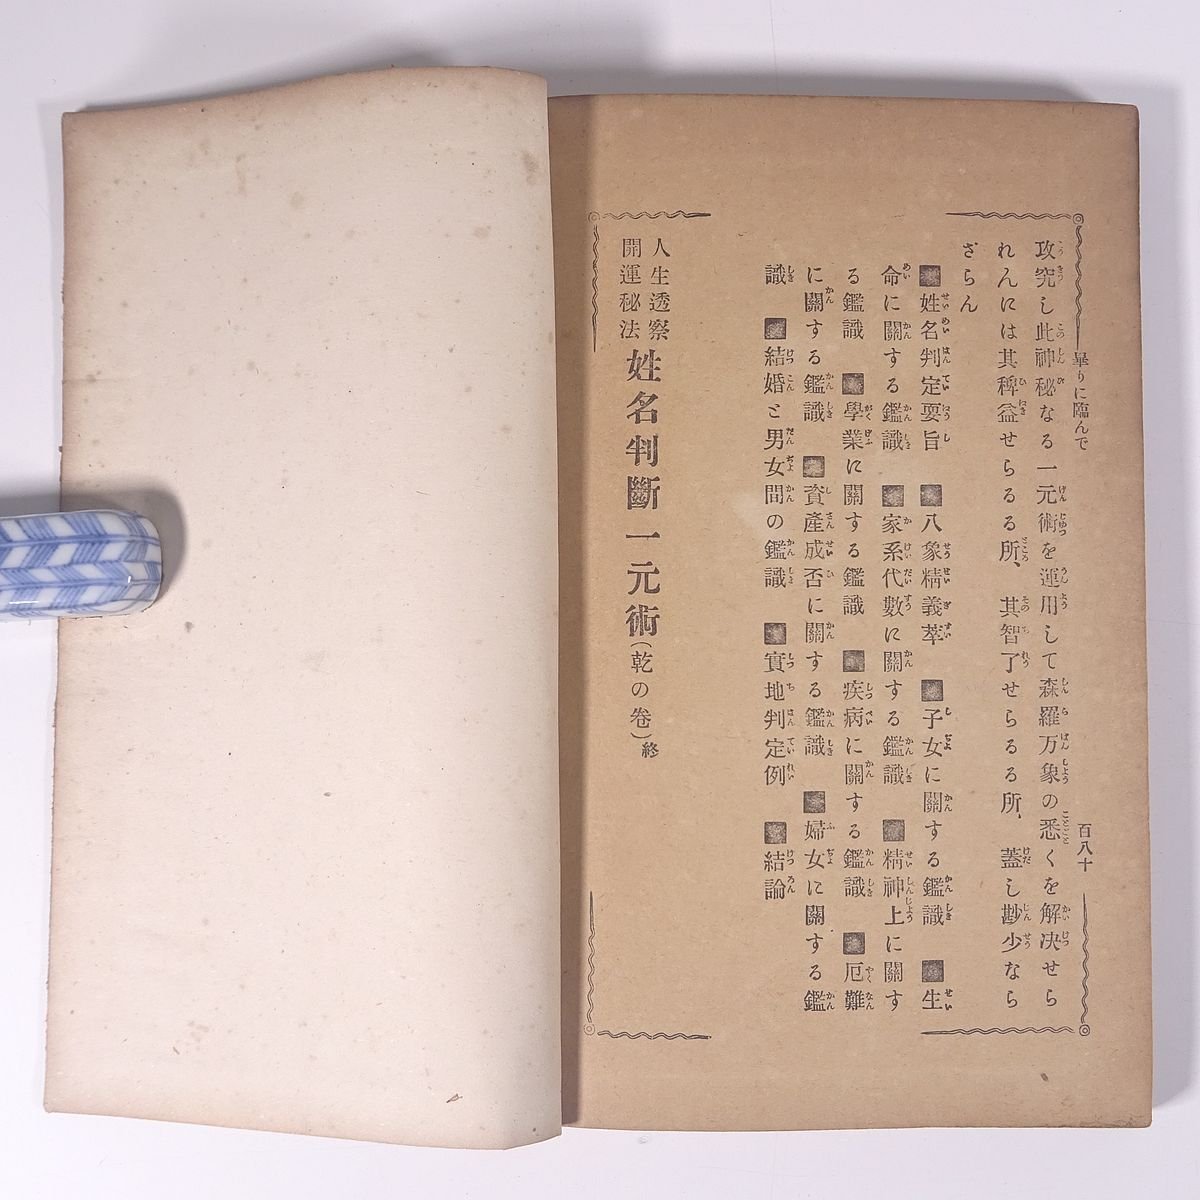 畢りに臨んで
百八十
攻究し此神秘なる一元術を運用して森羅万象の悉くを解决せら
れんには其稗益せらるる所、其智了せらるる所、蓋し尠少なら
ざらん
■姓名判定要旨 ■八象精義萃 ■子女に關する鑑識 ■生
命に關する鑑識 ■家系代數に關する鑑識 ■精神上に關す
る鑑識 ■學業に關する鑑識 ■疾病に關する鑑識 ■厄難
に關する鑑識 ■資產成否に關する鑑識 ■婦女に關する鑑
識 ■結婚と男女間の鑑識 ■實地判定例 ■結論
人生透察
開運秘法
姓名判斷一元術(乾の巻)終